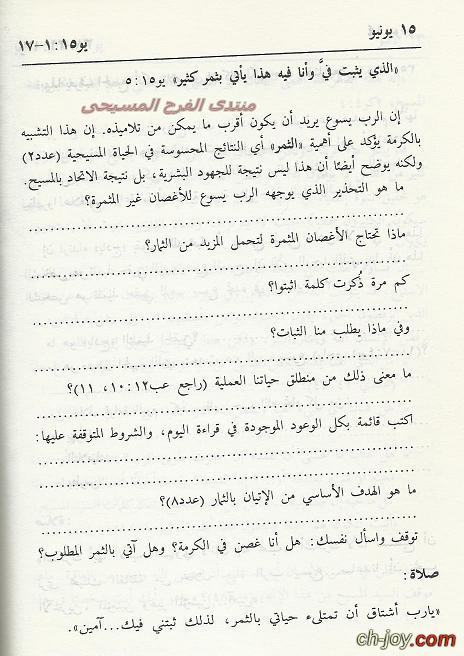 ١٥ يونيو يو١٥:١-١٧
«الذي يثبت فيَّ وأنا فيه هذا يأتي بثمر كثير» يو١٥:٥
منتدى الفرح المسيحى
إن الرب يسوع يريد أن يكون أقرب ما يمكن من تلاميذه. إن هذا التشبيه
بالكرمة يؤكد على أهمية «الثمر» أي النتائج المحسوسة في الحياة المسيحية (عدد٢)
ولكنه يوضح أيضًا أن هذا ليس نتيجة للجهود البشرية، بل نتيجة الاتحاد بالمسيح.
ما هو التحذير الذي يوجهه الرب يسوع للأغصان غير المثمرة؟
ماذا تحتاج الأغصان المثمرة لتحمل المزيد من الثمار؟
كم مرة ذُكرت كلمة اثبتوا؟
وفي ماذا يطلب منا الثبات؟
ما معنى ذلك من منطلق حياتنا العملية (راجع عب١٢:١٠، ١١)؟
اكتب قائمة بكل الوعود الموجودة في قراءة اليوم، والشروط المتوقفة عليها:
ما هو الهدف الأساسي من الإتيان بالثمار (عدد٨)؟
توقف واسأل نفسك: هل أنا غصن في الكرمة؟ وهل آتي بالثمر المطلوب؟
صلاة:
«يارب أشتاق أن تمتلىء حياتي بالثمر، لذلك ثبتني فيك...آمين».
ch-joy.com